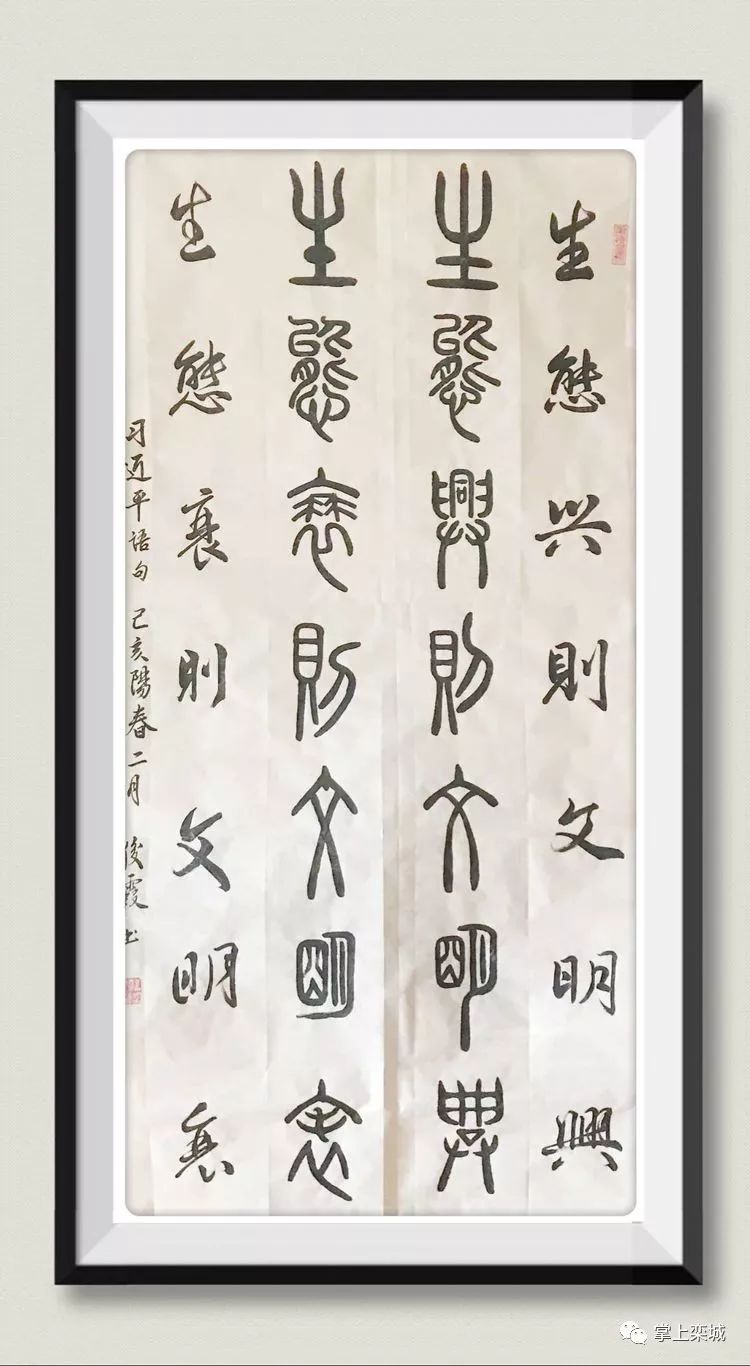 生態兴則文明興
生態興則文明興
生態衰則文明衰
生態衰則文明衰
习近平語句 己亥陽春二月 俊霞书
掌上栾城